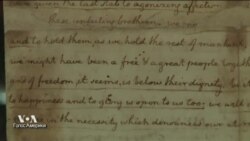 have given the last stab to agonizing affection
these unfeeling brethren. we
and to hold them as we hold the rest of mankind
we might have been a free & a great people together
of freedom, it seems, is below their dignity.
to happiness and to glory is open to us too; we will
in the necessity which denounces our
VOA
Голос Америки